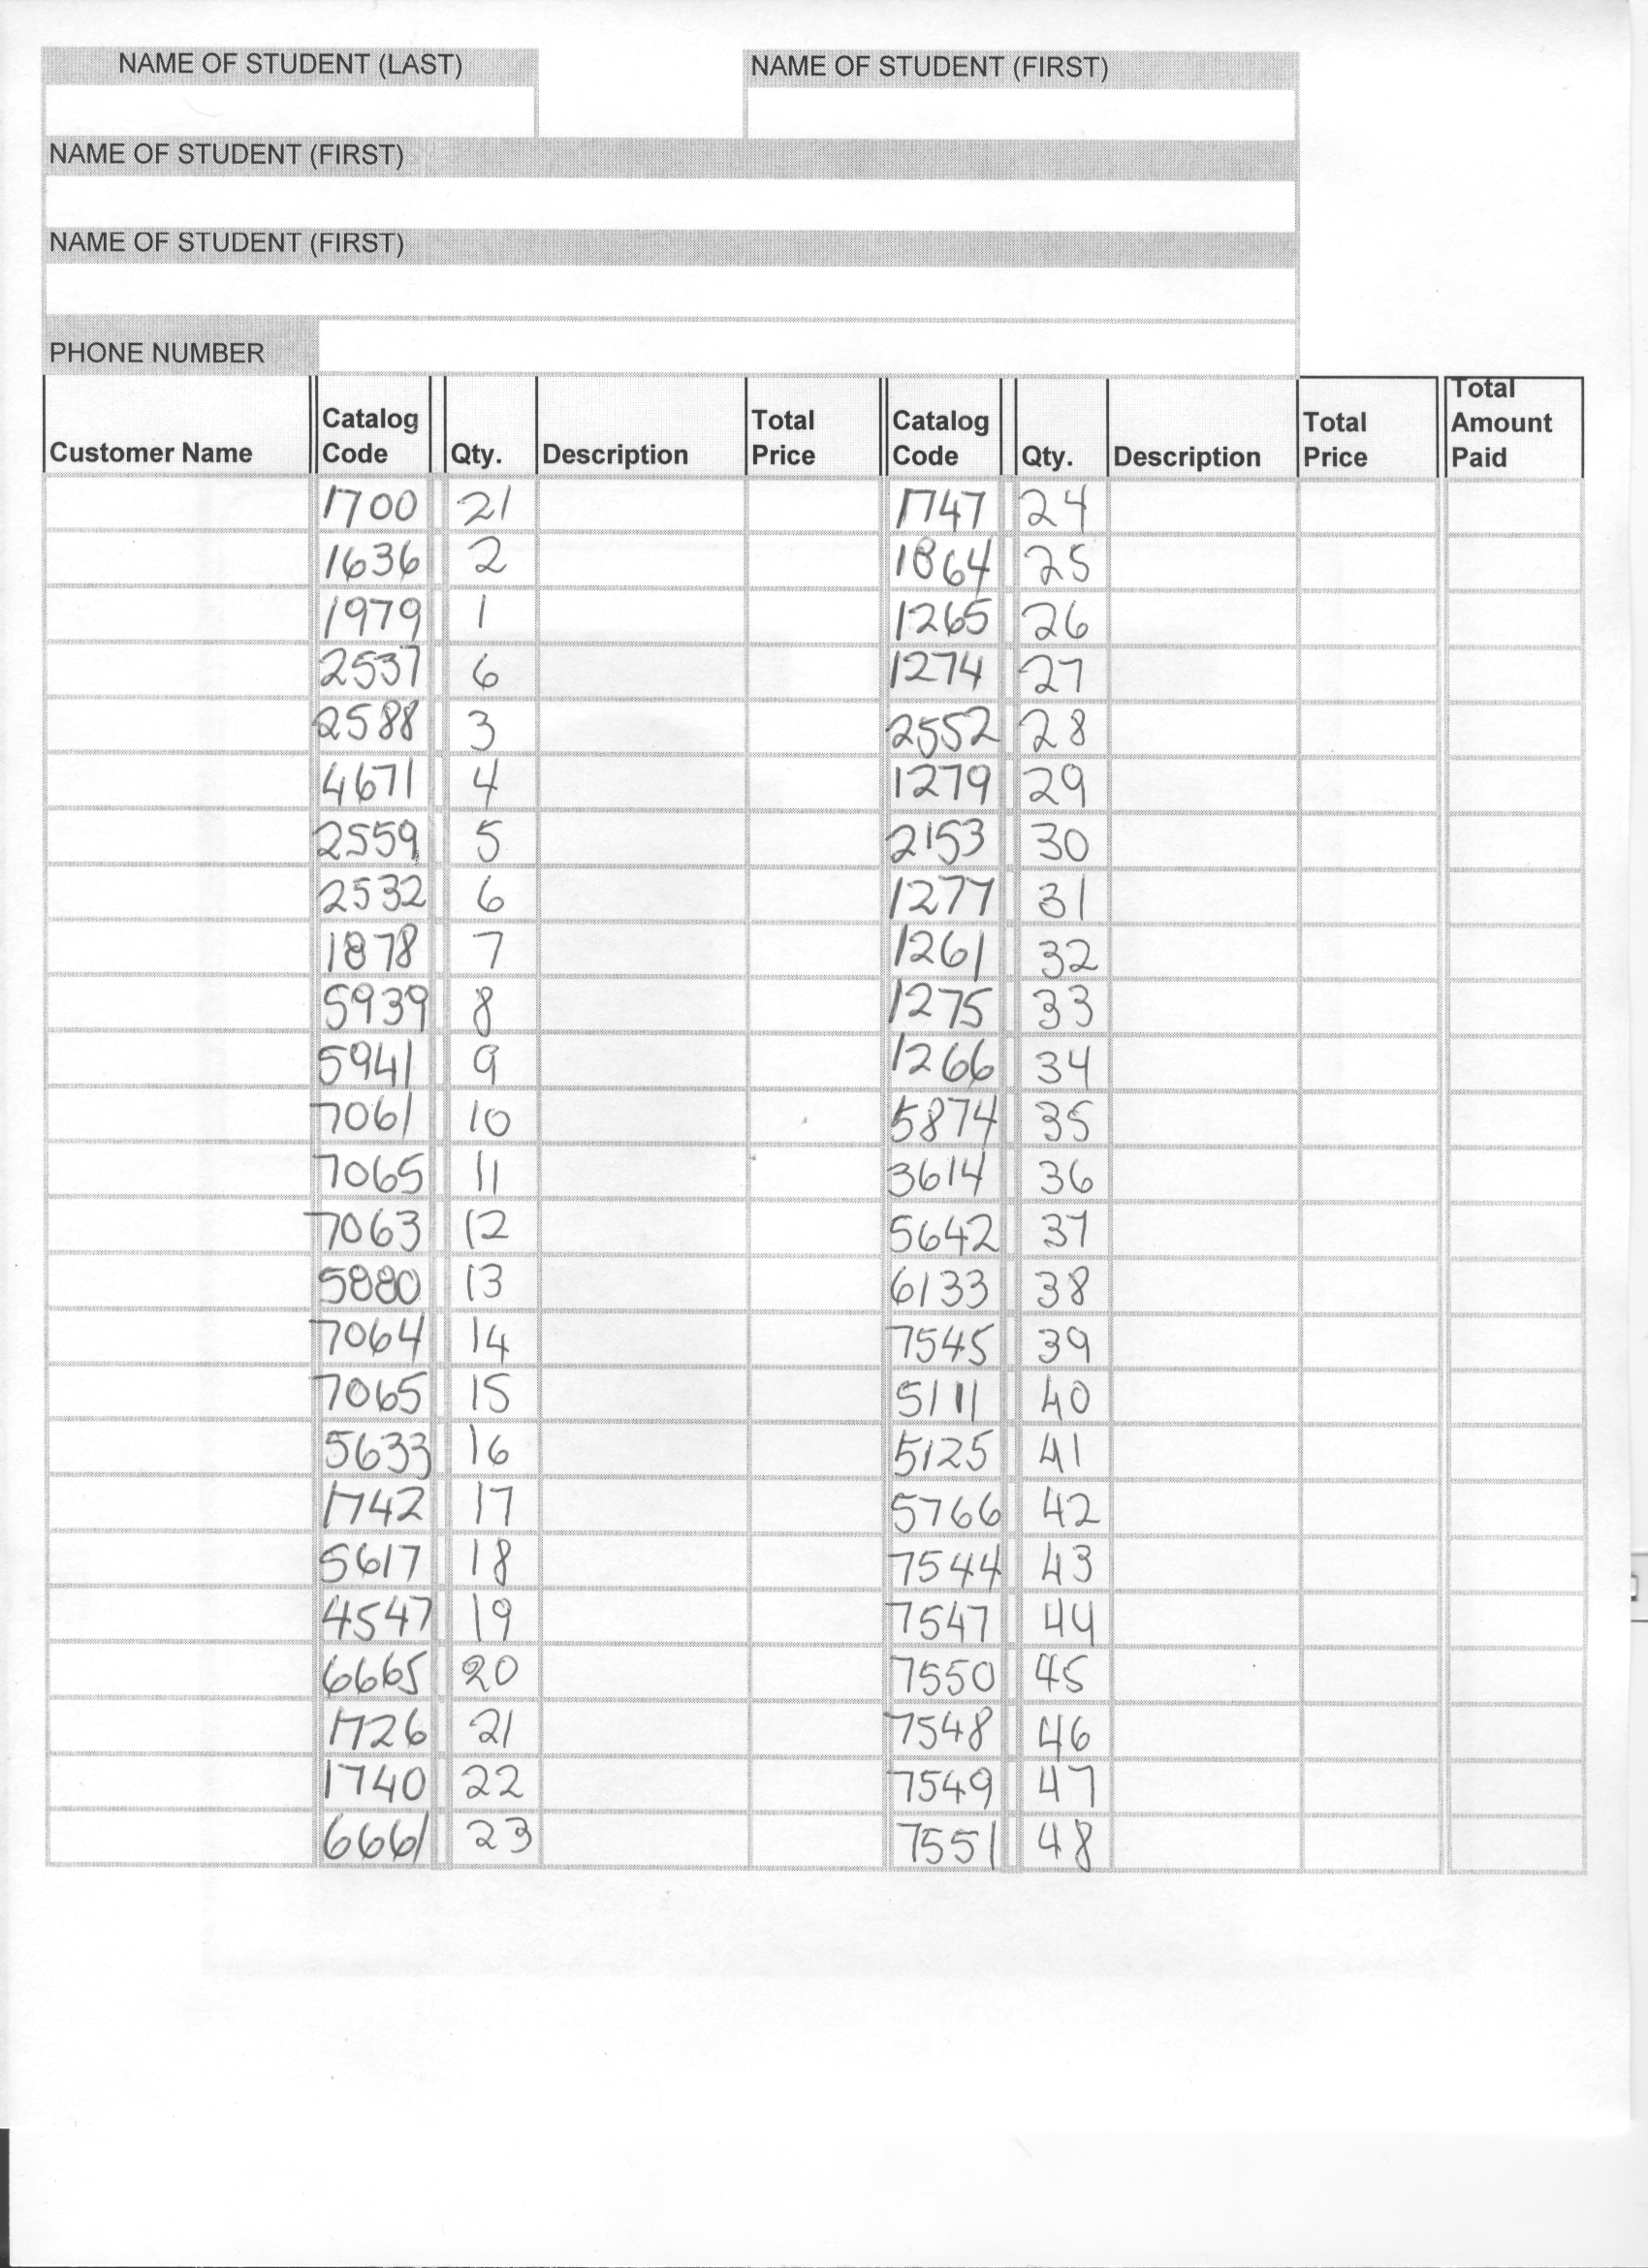 NAME OF STUDENT (LAST) NAME OF STUDENT (FIRST)
NAME OF STUDENT (FIRST)
NAME OF STUDENT (FIRST)
PHONE NUMBER
Customer Name Catalog Code Qty. Description Total Price Catalog Code Qty. Description Total Price Total Amount Paid
1700 21 1747 24
1636 2 1864 25
1979 1 1265 26
2537 6 1274 27
2588 3 2552 28
4671 4 1279 29
2559 5 2153 30
2532 6 1277 31
1878 7 1261 32
5939 8 1275 33
5941 9 1266 34
7061 10 5874 35
7065 11 3614 36
7063 12 5642 37
5880 13 6133 38
7064 14 7545 39
7065 15 5111 40
5633 16 5125 41
1742 17 5766 42
5617 18 7544 43
4547 19 7547 44
6665 20 7550 45
1726 21 7548 46
1740 22 7549 47
6661 23 7551 48